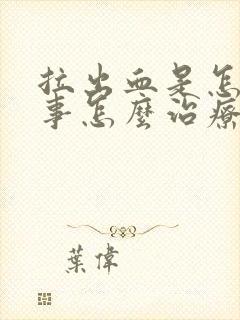 拉出血是怎
事怎麼治療
葉偉